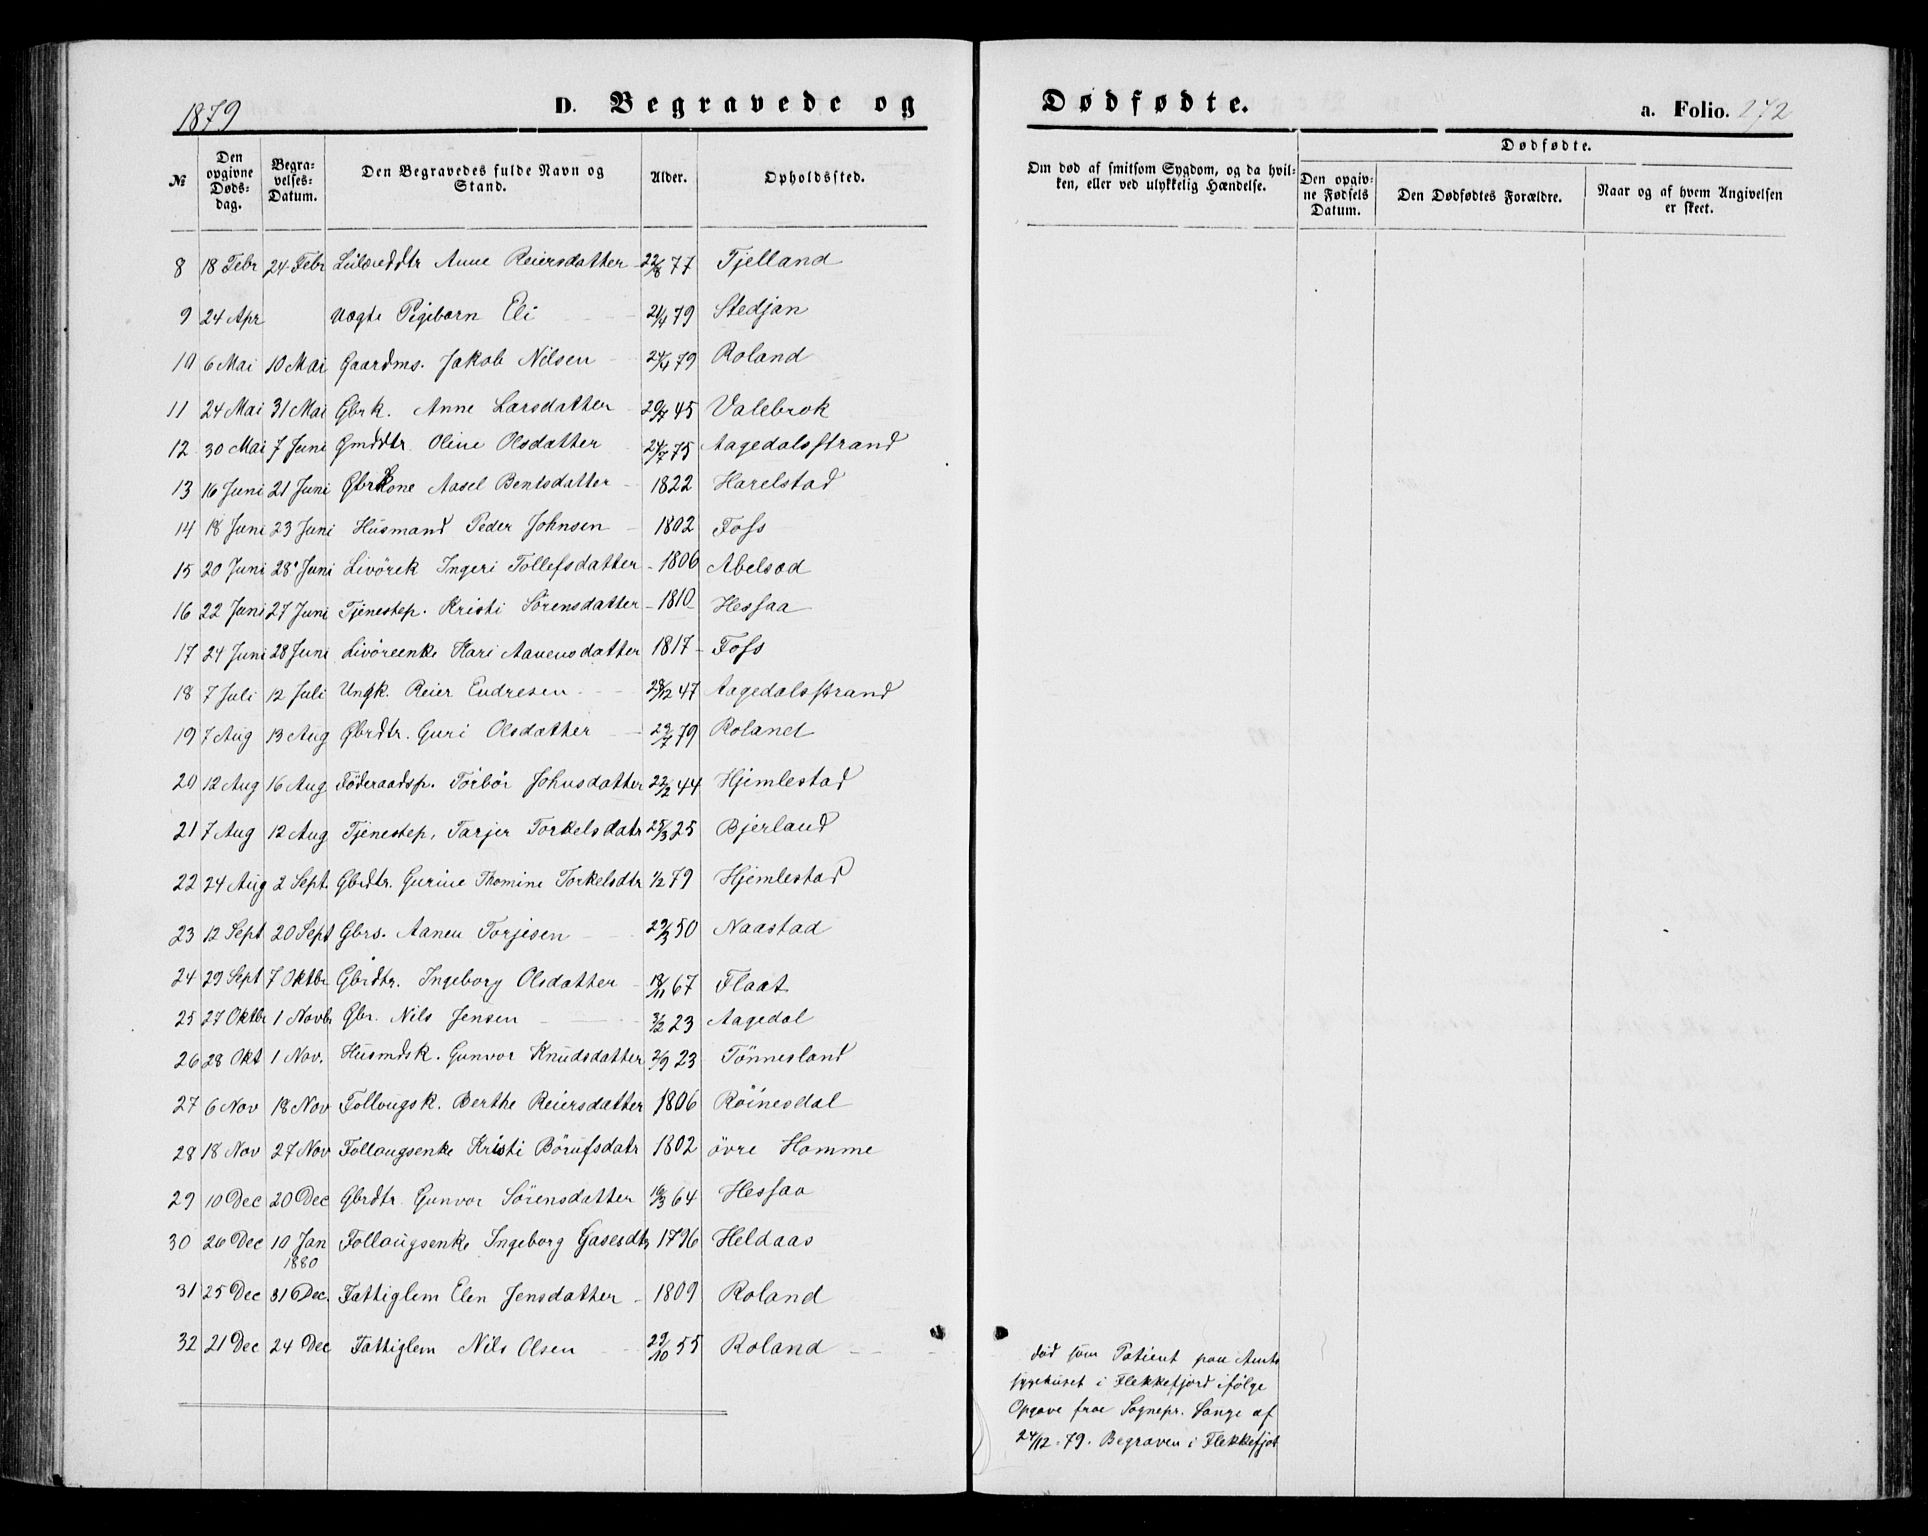 1879
D. Begravede og
Dødfødte.
a. Folio. 272
№
Den opgivne Døds-dag.
Begra-velses-Datum.
Den Begravedes fulde Navn og Stand.
Alder.
Opholdssted.
Om død af smitsom Sygdom, og da hvil-ken, eller ved ulykkelig Hændelse.
Dødfødte.
Den opgiv-ne Fødsels Datum.
Den Dødfødtes Forældre.
Naar og af hvem Angivelsen er skeet.
8 18 Febr 24 Febr Anne Reiersdatter 22/8 77 Fjelland
9 24 Apr Uægte Pigebarn Eli 21/4 79 Stedjan
10 6 Mai 10 Mai Gaardms. Jakob Nilsen 24/4 79 Roland
11 24 Mai 31 Mai Gbrk. Anne Larsdatter 45 Valebrok
12 30 Mai 7 Juni Gmddtr Oline Olsdatter 24/7 75 Aagedalsstrand
13 16 Juni 21 Juni Gbrkone Aasel Bentsdatter 1822 Harelstad
14 18 Juni 23 Juni Husmand Peder Johnsen 1802 Foss
15 20 Juni 28 Juni Livörek Ingeri Tollefsdatter 1806 Abelsæd
16 22 Juni 27 Juni Tjenestep. Kristi Sörensdatter 1810 Hessaa
17 24 Juni 28 Juni Livöreenke Kari Aanensdatter 1817 Foss
18 7 Juli 12 Juli Ungk. Reier Endresen 28/12 47 Aagedalsstrand
19 7 Aug 13 Aug Gbrdtr. Guri Olsdatter 29/7 79 Roland
20 12 Aug 16 Aug Föderaadsp. Torbör Johnsdatter 22/2 44 Hjemlestad
21 7 Aug 12 Aug Tjenestep. Tarjer Torkelsdatr 25/3 25 Bjerland
22 24 Aug 2 Sept. Gbrdtr. Gurine Thomine Torkelsdtr 1/2 79 Hjemlestad
23 12 Sept 20 Sept Gbrs. Aanen Torjesen 29/3 50 Naastad
24 29 Sept 7 Oktbr Gbrdtr. Ingeborg Olsdatter 18/11 67 Flaat
25 27 Oktbr 1 Novb Gbr. Nils Jensen 3/2 23 Aagedal
26 28 Okt 1 Nov. Husmdsk. Gunvor Knudsdatter 2/9 23 Tönnesland
27 6 Nov 18 Nov Follougsk. Berthe Reiersdatter 1806 Röinesdal
28 18 Nov 27 Nov Follougsenke Kristi Börufsdatr 1802 övre Homme
29 10 Dec 20 Dec Gbrdtr. Gunvor Sörensdatter 16/3 64 Hessaa
30 26 Dec 10 Jan 1880 Follougsenke Ingeborg Gasesdtr 1796 Heldaas
31 25 Dec 31 Dec. Fattiglem Elen Jensdatter 1809 Roland
32 21 Dec 24 Dec Fattiglem Nils Olsen 29/10 55 Roland
död som Patient paa Amts
sygehuset i Flekkefjord ifölge
Opgave fra Sognepr. Lange af
24/12. 79. Begraven i Flekkefjor